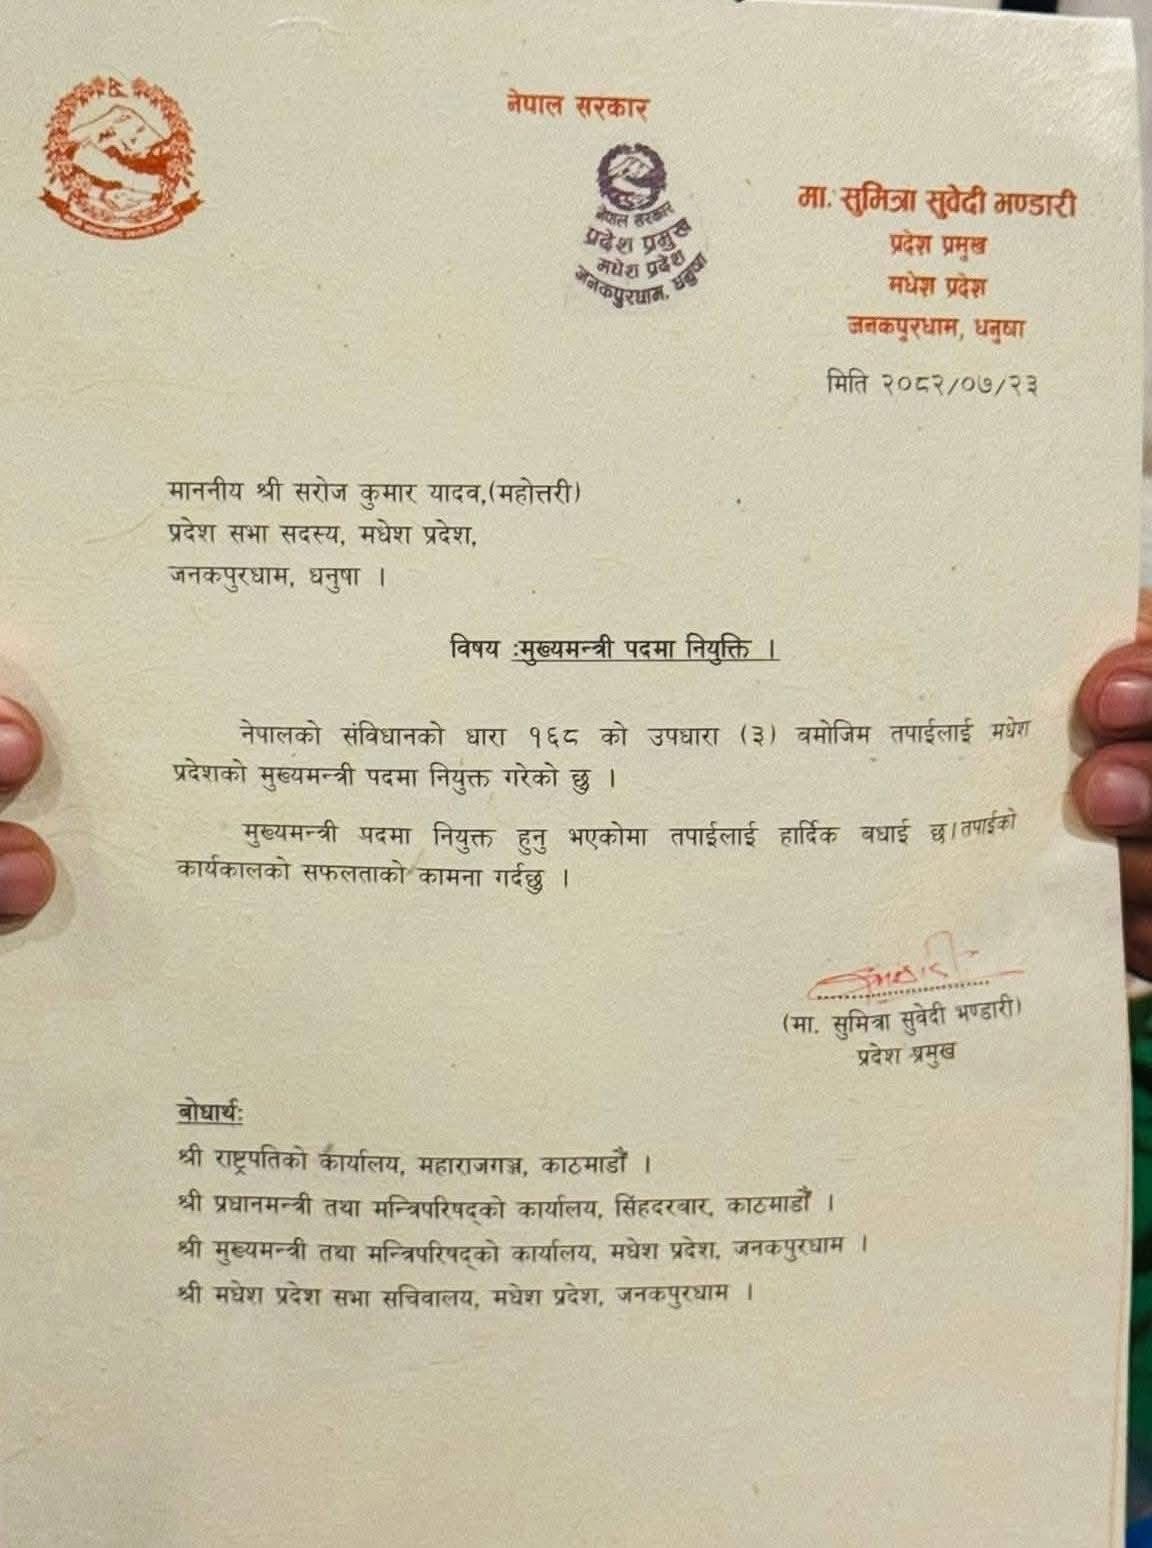 नेपाल सरकार
नेपाल सरकार
प्रदेश प्रमुख
मधेश प्रदेश
जनकपुरधाम, धनुषा
मा. सुमित्रा सुवेदी भण्डारी
प्रदेश प्रमुख
मधेश प्रदेश
जनकपुरधाम, धनुषा
मिति २०८२/०७/२३
माननीय श्री सरोज कुमार यादव,(महोत्तरी)
प्रदेश सभा सदस्य, मधेश प्रदेश,
जनकपुरधाम, धनुषा ।
विषय :मुख्यमन्त्री पदमा नियुक्ति ।
नेपालको संविधानको धारा १६८ को उपधारा (३) बमोजिम तपाईलाई मधेश
प्रदेशको मुख्यमन्त्री पदमा नियुक्त गरेको छु ।
मुख्यमन्त्री पदमा नियुक्त हुनु भएकोमा तपाईलाई हार्दिक बधाई छ।तपाईको
कार्यकालको सफलताको कामना गर्दछु ।
(मा. सुमित्रा सुवेदी भण्डारी)
प्रदेश प्रमुख
बोधार्थ:
श्री राष्ट्रपतिको कार्यालय, महाराजगञ्ज, काठमाडौं ।
श्री प्रधानमन्त्री तथा मन्त्रिपरिषद्को कार्यालय, सिंहदरबार, काठमाडौं ।
श्री मुख्यमन्त्री तथा मन्त्रिपरिषद्को कार्यालय, मधेश प्रदेश, जनकपुरधाम ।
श्री मधेश प्रदेश सभा सचिवालय, मधेश प्रदेश, जनकपुरधाम ।